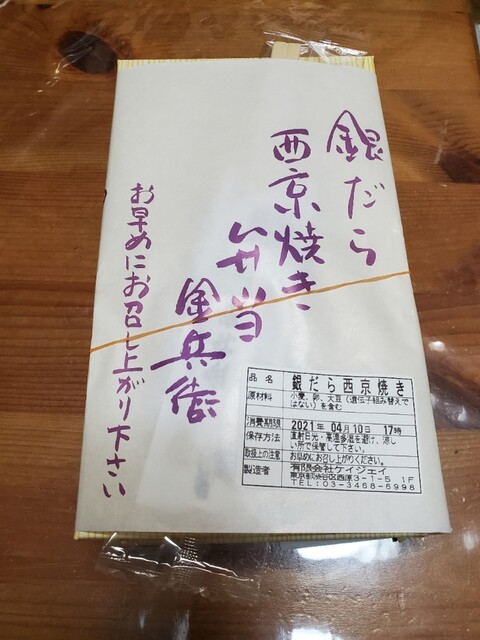 銀だら
西京焼き
弁当
金兵衛
お早めにお召し上がり下さい
品名 銀だら西京焼き
原材料 小麦、卵、大豆（遺伝子組み替えで
はない）を含む
消費期限 2021年 04月10日 17時
保存方法 直射日光・高温多湿を避け、涼し
い所で保管して下さい。
取扱上の注意 お早めにお召し上がり下さい。
製造者 有限会社ケイジェイ
東京都渋谷区西原3-1-5 1F
TEL:03-3468-5998